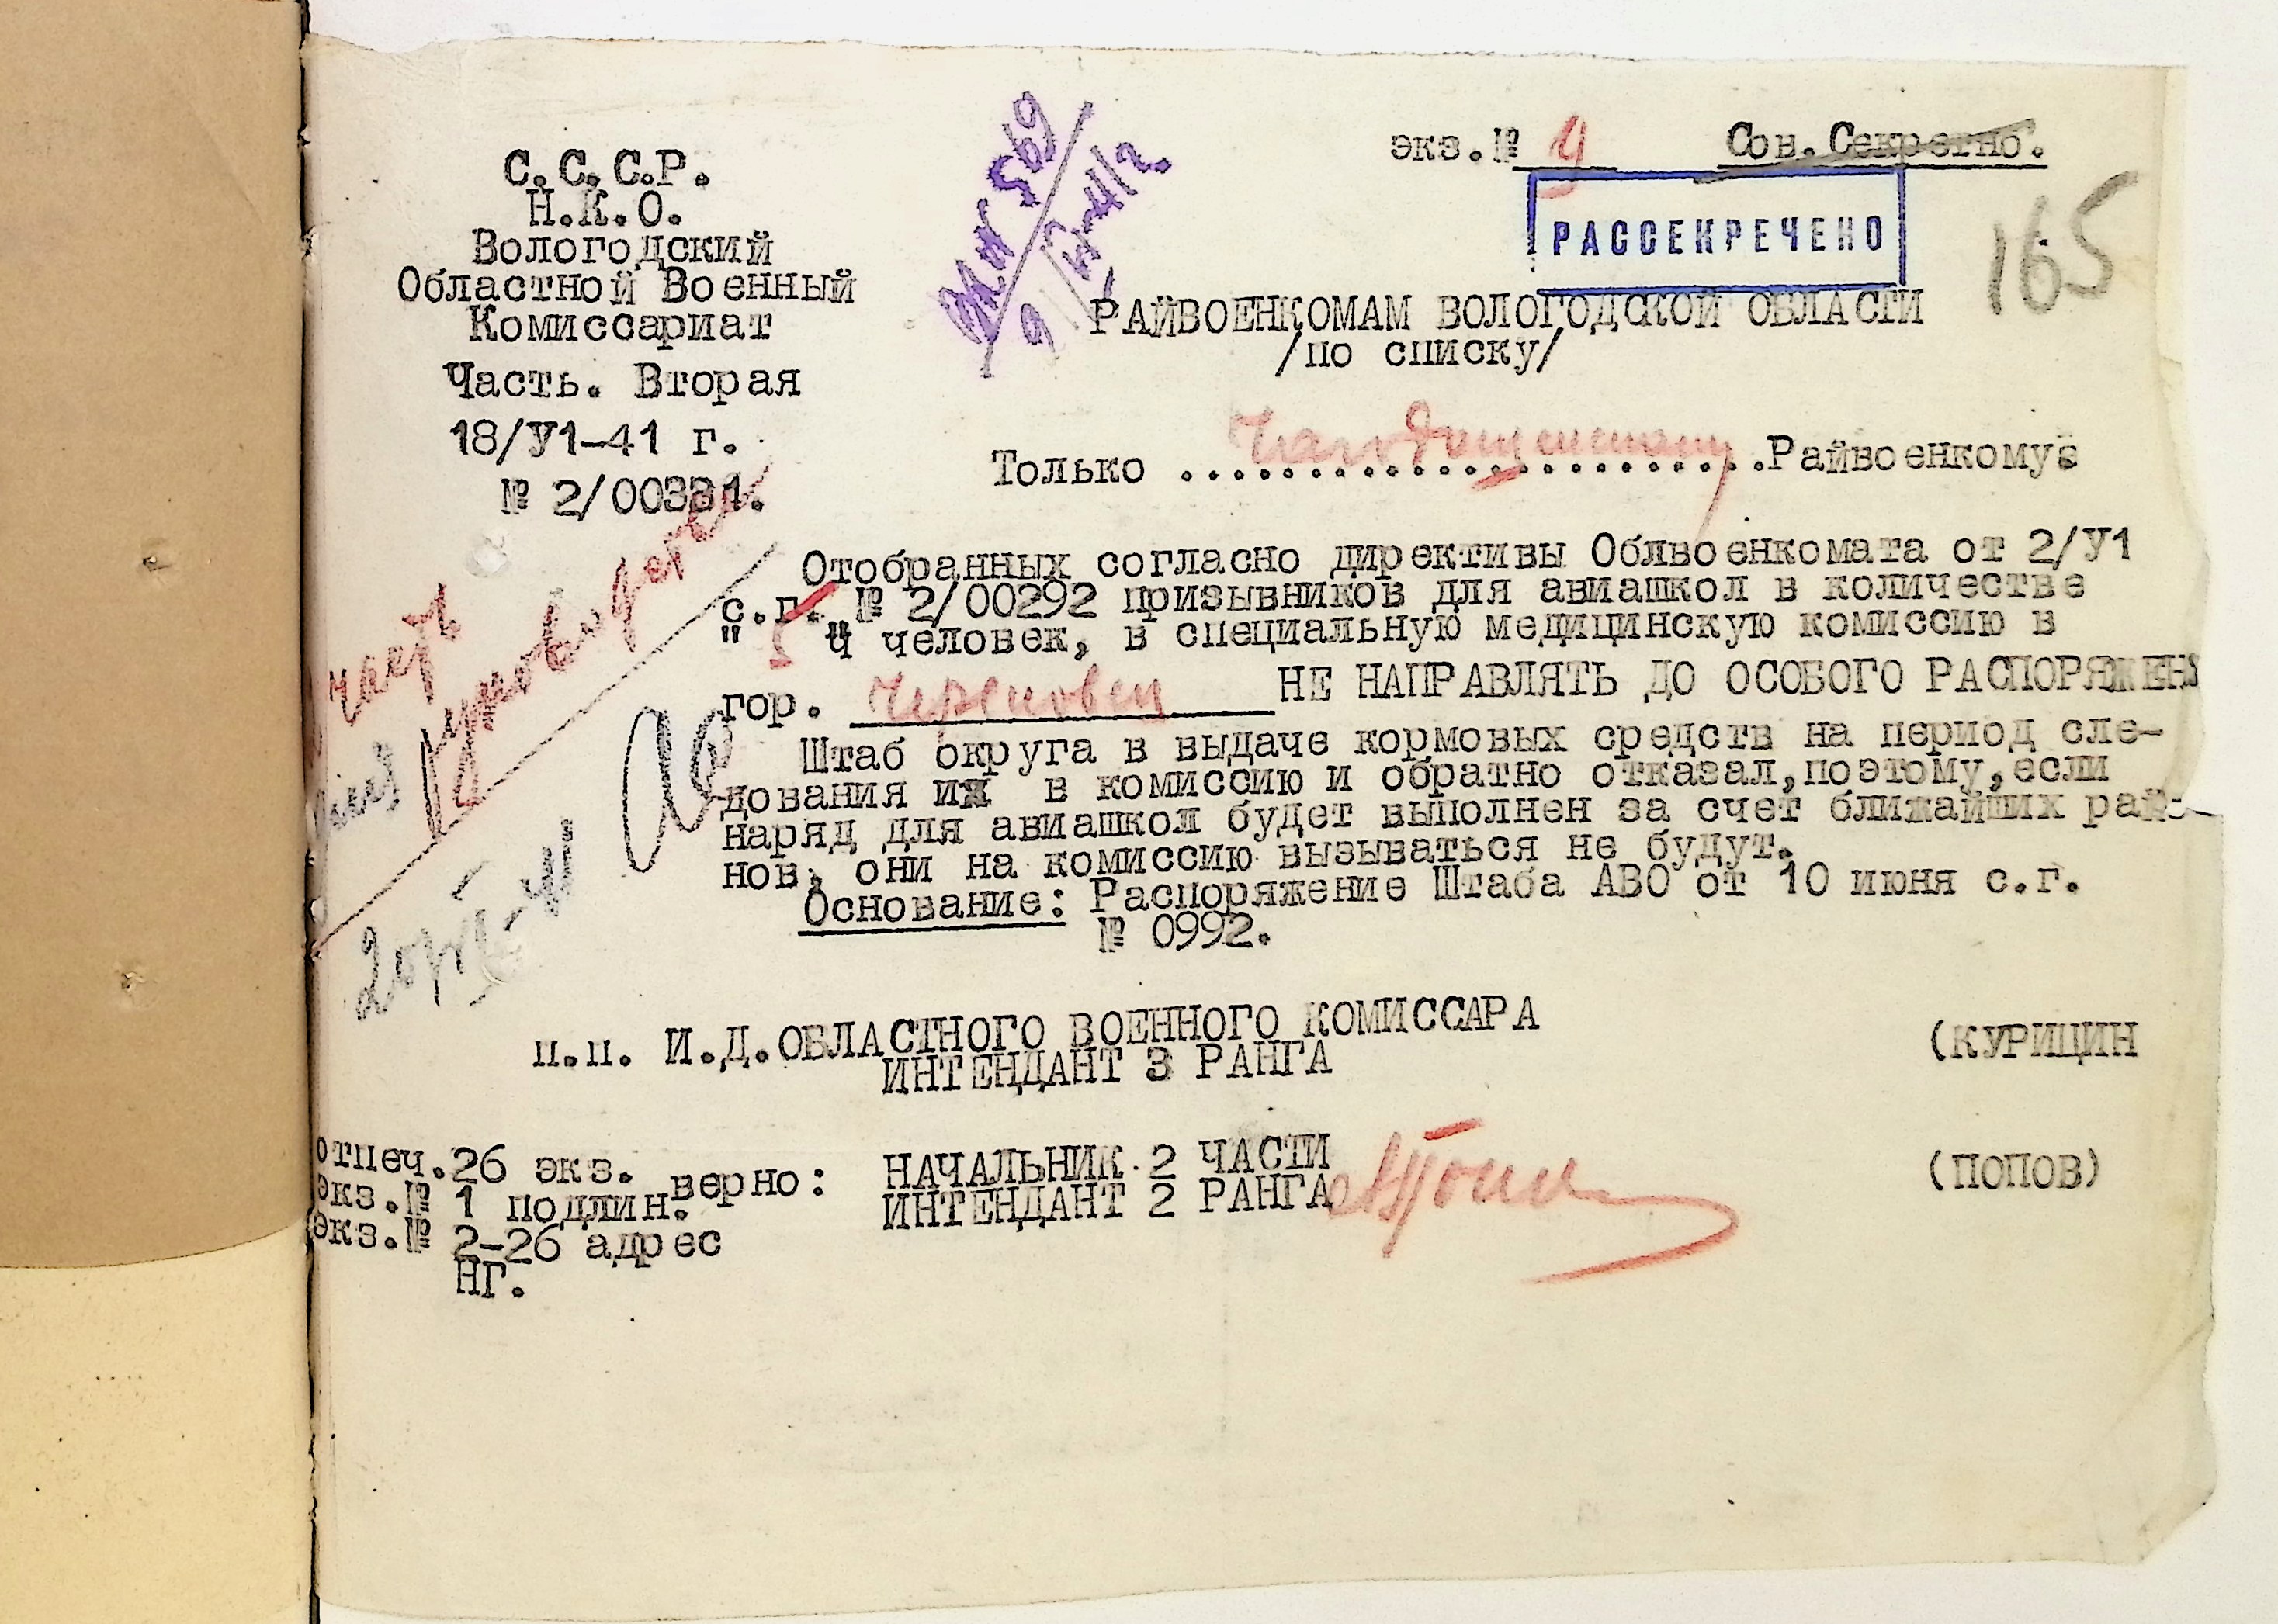 экз.№ 9 Сов. Секретно.
РАССЕКРЕЧЕНО
165
С.С.С.Р.
Н.К.О.
Вологодский
Областной Военный
Комиссариат
Часть. Вторая
18/У1-41 г.
№ 2/00331.
569
РАЙВОЕНКОМАМ ВОЛОГОДСКОЙ ОБЛАСТИ
/по списку/
Только Чагодощенскому Райвоенкому:
Отобранных согласно директивы Облвоенкомата от 2/У1
с.г. № 2/00292 призывников для авиашкол в количестве
" 5 " человек, в специальную медицинскую комиссию в
гор. Череповец НЕ НАПРАВЛЯТЬ ДО ОСОБОГО РАСПОРЯЖЕН
Штаб округа в выдаче кормовых средств на период сле-
дования их в комиссию и обратно отказал,поэтому,если
наряд для авиашкол будет выполнен за счет ближайших райо-
нов, они на комиссию вызываться не будут.
Основание: Распоряжение Штаба АВО от 10 июня с.г.
№ 0992.
п.п. И.Д.ОБЛАСТНОГО ВОЕННОГО КОМИССАРА
ИНТЕНДАНТ 3 РАНГА (КУРИЦИН
отпеч.26 экз.
экз.№ 1 подлин.
экз.№ 2-26 адрес
НГ.
верно: НАЧАЛЬНИК 2 ЧАСТИ
ИНТЕНДАНТ 2 РАНГА (ПОПОВ)